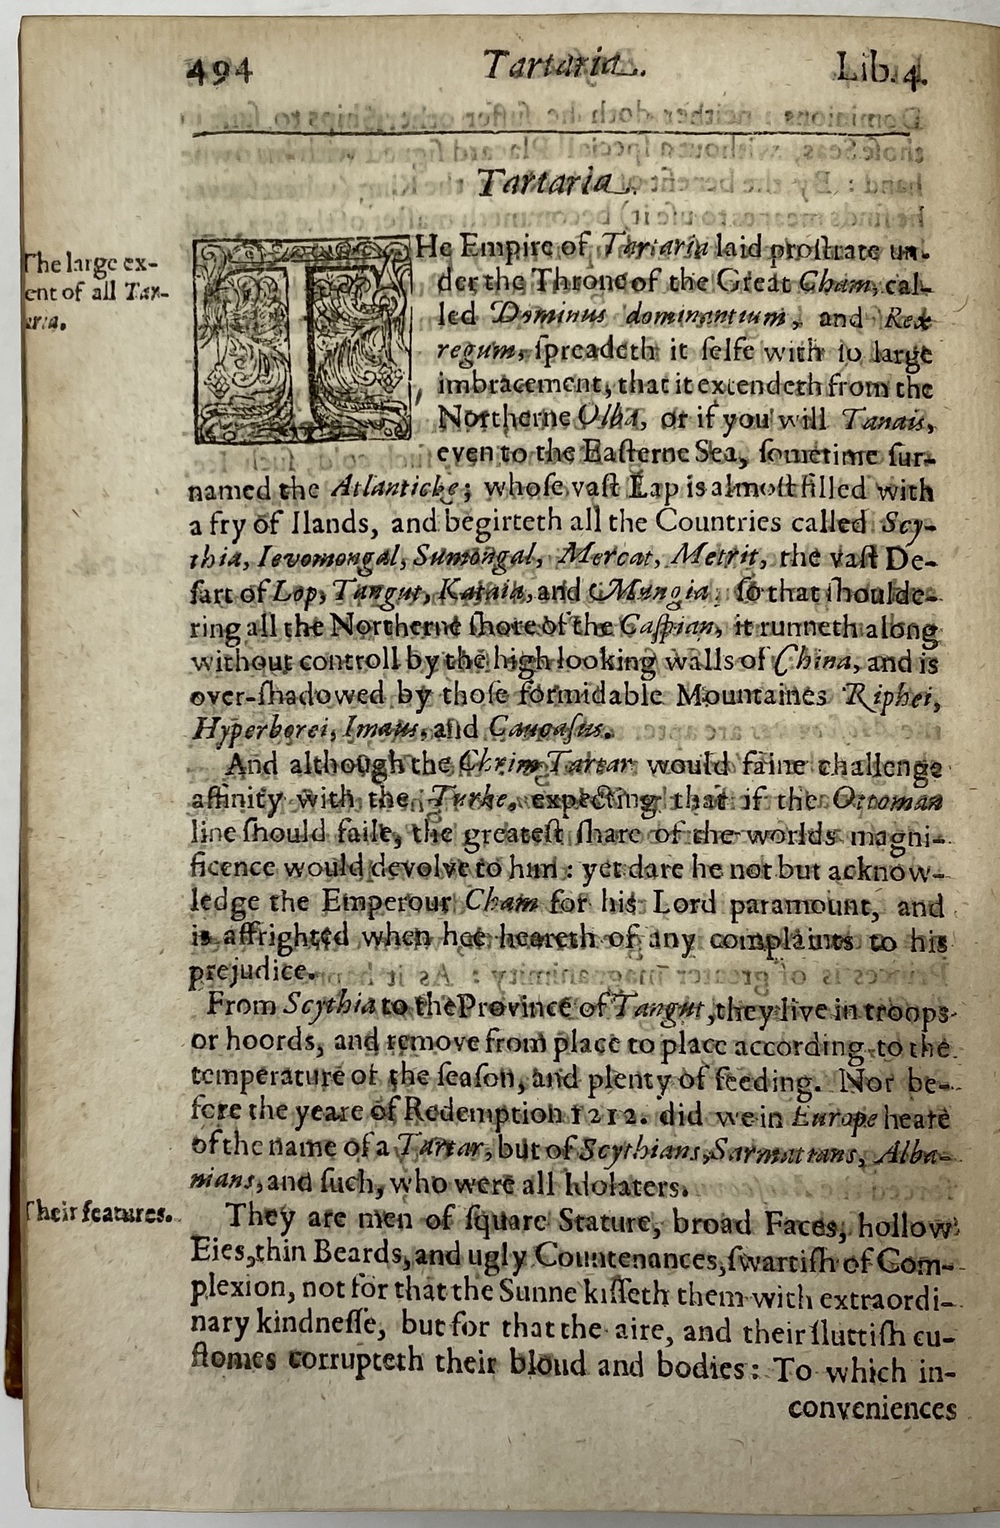 494 Tartaria. Lib. 4.
Tartaria.
The large ex-
ent of all Tar-
aria.
THe Empire of Tartaria laid proſtrate un-
der the Throne of the Great Cham, cal-
led Dominus dominantium, and Rex
regum, ſpreadeth it ſelfe with ſo large
imbracement, that it extendeth from the
Northerne Olba, or if you will Tanais,
even to the Eaſterne Sea, ſometime ſur-
named the Atlanticke; whoſe vaſt Lap is almoſt filled with
a fry of Ilands, and begirteth all the Countries called Scy-
thia, Ievomongal, Sumongal, Mercat, Metrit, the vaſt De-
ſart of Lop, Tangut, Kataia, and Mangia: ſo that ſhoulde-
ring all the Northerne ſhore of the Caſpian, it runneth along
without controll by the high looking walls of China, and is
over-ſhadowed by thoſe formidable Mountaines Riphei,
Hyperborei, Imaus, and Caucaſus.
And although the Chrim Tartar would faine challenge
affinity with the Turke, expecting that if the Ottoman
line ſhould faile, the greateſt ſhare of the worlds magni-
ficence would devolve to him: yet dare he not but acknow-
ledge the Emperour Cham for his Lord paramount, and
is affrighted when hee heareth of any complaints to his
prejudice.
From Scythia to the Province of Tangut, they live in troops
or hoords, and remove from place to place according to the
temperature of the ſeaſon, and plenty of feeding. Nor be-
fore the yeare of Redemption 1212. did we in Europe heare
of the name of a Tartar, but of Scythians, Sarmatians, Alba-
nians, and ſuch, who were all Idolaters.
Their features.
They are men of ſquare Stature, broad Faces, hollow
Eies, thin Beards, and ugly Countenances, ſwartiſh of Com-
plexion, not for that the Sunne kiſſeth them with extraordi-
nary kindneſſe, but for that the aire, and their ſluttiſh cu-
ſtomes corrupteth their bloud and bodies: To which in-
conveniences